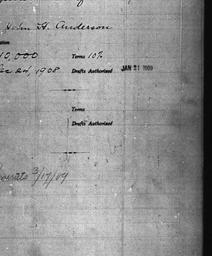 John H. Anderson
10,000 Terms 10%
Dec 24, 1908 Drafts Authorized JAN 21 1909
Terms
Drafts Authorized
3/17/09